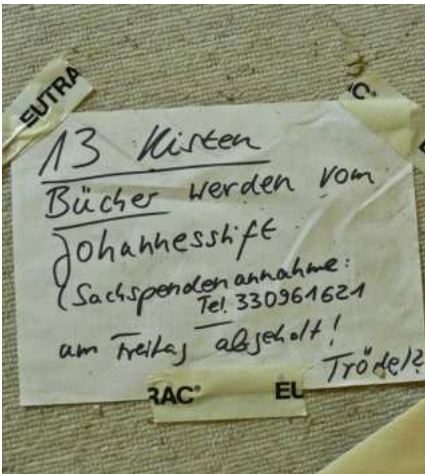 EUTRA
C°
13 Kisten
Bücher werden vom
Johannesstift
(Sachspendenannahme:
Tel. 330961621
am Freitag abgeholt!
Trödel?
RAC°
EU